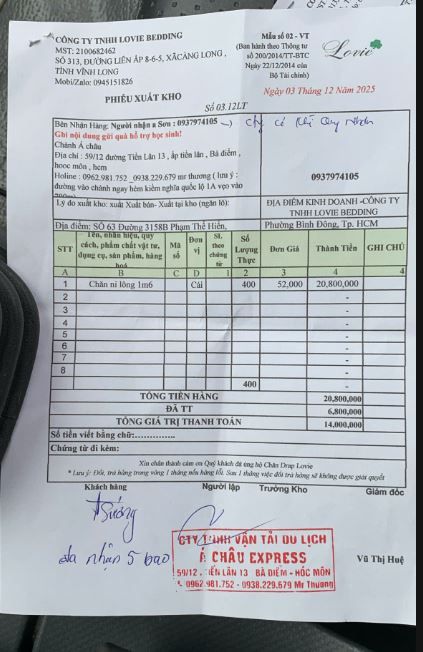 CÔNG TY TNHH LOVIE BEDDING
MST: 2100682462
SỐ 313, ĐƯỜNG LIÊN ẤP 8-6-5, XÃ CÀNG LONG,
TỈNH VĨNH LONG
Mobi/Zalo: 0945151826
Mẫu số 02 - VT
(Ban hành theo Thông tư
số 200/2014/TT-BTC
Ngày 22/12/2014 của
Bộ Tài chính)
Lovie
PHIẾU XUẤT KHO
Ngày 03 Tháng 12 Năm 2025
Số 03.12LT
Bên Nhận Hàng: Người nhận a Sơn : 0937974105
Ghi nội dung gửi quà hỗ trợ học sinh!
Chành Á châu
Địa chỉ : 59/12 đường Tiền Lân 13 , ấp tiền lân , Bà điểm ,
hooc môn , hcm
Holine : 0962.981.752 _0938.229.679 mr thương ( lưu ý :
đường vào chành ngay hẻm kiểm nghĩa quốc lộ 1A vẹo vào
0937974105
Lý do xuất kho: xuất Xuất bán- Xuất tại kho (ngăn lô):
ĐỊA ĐIỂM KINH DOANH -CÔNG TY
TNHH LOVIE BEDDING
Địa điểm: SỐ 63 Đường 3158B Phạm Thế Hiển,
Phường Bình Đông, Tp. HCM
STT Tên, nhãn hiệu, quy cách, phẩm chất vật tư, dụng cụ, sản phẩm, hàng hoá Mã số Đơn vị SL theo chứng Số Lượng Thực Đơn Giá Thành Tiền GHI CHÚ
A B C D 1 2 3 4 4
1 Chăn nỉ lông 1m6 Cái 400 52,000 20,800,000
2 -
3 -
4 -
5 -
6 -
7 -
8 -
400
TỔNG TIỀN HÀNG 20,800,000
ĐÃ TT 6,800,000
TỔNG GIÁ TRỊ THANH TOÁN 14,000,000
Số tiền viết bằng chữ:
Chứng từ đi kèm:
Xin chân thành cảm ơn Quý khách đã ủng hộ Chăn Drap Lovie
* Lưu ý: Đổi, trả hàng trong vòng 1 tháng nếu hàng lỗi. Sau 1 tháng việc đổi trả hàng sẽ không được giải quyết
Khách hàng Người lập Trưởng Kho Giám đốc
Sương
đa nhận 5 bao
CTY TNHH VẬN TẢI DU LỊCH
Á CHÂU EXPRESS
59/12 . TIỀN LÂN 13 BÀ ĐIỂM - HÓC MÔN
0962.981.752 - 0938.229.679 Mr Thương
Vũ Thị Huệ